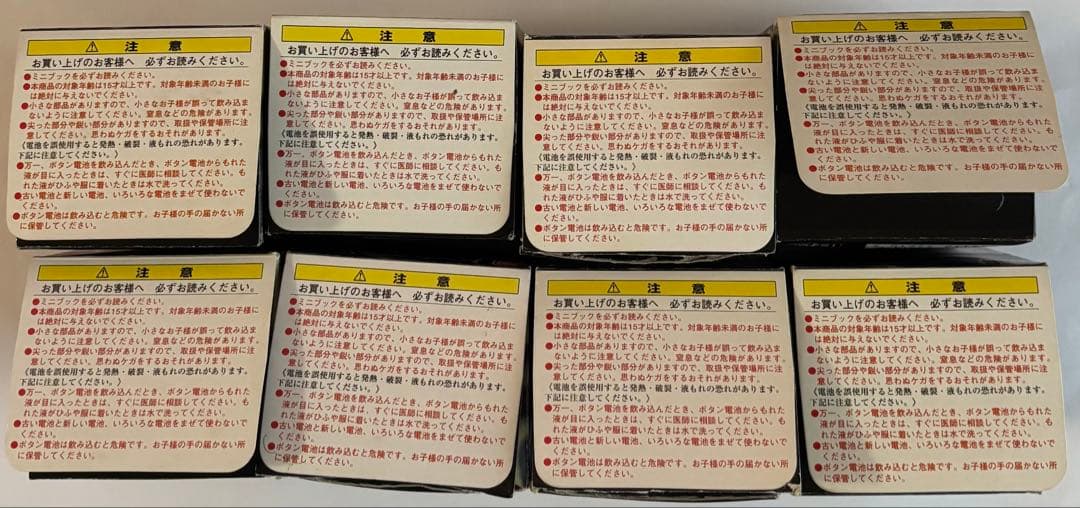 ⚠ 注意
お買い上げのお客様へ 必ずお読みください。
●ミニブックを必ずお読みください。
●本商品の対象年齢は15才以上です。対象年齢未満のお子様に
は絶対に与えないでください。
●小さな部品がありますので、小さなお子様が誤って飲み込ま
ないように注意してください。窒息などの危険があります。
●尖った部分や鋭い部分がありますので、取扱や保管場所に注
意してください。思わぬケガをするおそれがあります。
〈電池を誤使用すると発熱・破裂・液もれの恐れがあります。
下記に注意してください。〉
●万一、ボタン電池を飲み込んだとき、ボタン電池からもれた
液が目に入ったときは、すぐに医師に相談してください。も
れた液がひふや服に着いたときは水で洗ってください。
●古い電池と新しい電池、いろいろな電池をまぜて使わないで
ください。
●ボタン電池は飲み込むと危険です。お子様の手の届かない所
に保管してください。
⚠ 注意
お買い上げのお客様へ 必ずお読みください。
●ミニブックを必ずお読みください。
●本商品の対象年齢は15才以上です。対象年齢未満のお子様に
は絶対に与えないでください。
●小さな部品がありますので、小さなお子様が誤って飲み込ま
ないように注意してください。窒息などの危険があります。
●尖った部分や鋭い部分がありますので、取扱や保管場所に注
意してください。思わぬケガをするおそれがあります。
〈電池を誤使用すると発熱・破裂・液もれの恐れがあります。
下記に注意してください。〉
●万一、ボタン電池を飲み込んだとき、ボタン電池からもれた
液が目に入ったときは、すぐに医師に相談してください。も
れた液がひふや服に着いたときは水で洗ってください。
●古い電池と新しい電池、いろいろな電池をまぜて使わないで
ください。
●ボタン電池は飲み込むと危険です。お子様の手の届かない所
に保管してください。
⚠ 注意
お買い上げのお客様へ 必ずお読みください。
●ミニブックを必ずお読みください。
●本商品の対象年齢は15才以上です。対象年齢未満のお子様に
は絶対に与えないでください。
●小さな部品がありますので、小さなお子様が誤って飲み込ま
ないように注意してください。窒息などの危険があります。
●尖った部分や鋭い部分がありますので、取扱や保管場所に注
意してください。思わぬケガをするおそれがあります。
〈電池を誤使用すると発熱・破裂・液もれの恐れがあります。
下記に注意してください。〉
●万一、ボタン電池を飲み込んだとき、ボタン電池からもれた
液が目に入ったときは、すぐに医師に相談してください。も
れた液がひふや服に着いたときは水で洗ってください。
●古い電池と新しい電池、いろいろな電池をまぜて使わないで
ください。
●ボタン電池は飲み込むと危険です。お子様の手の届かない所
に保管してください。
⚠ 注意
お買い上げのお客様へ 必ずお読みください。
●ミニブックを必ずお読みください。
●本商品の対象年齢は15才以上です。対象年齢未満のお子様に
は絶対に与えないでください。
●小さな部品がありますので、小さなお子様が誤って飲み込ま
ないように注意してください。窒息などの危険があります。
●尖った部分や鋭い部分がありますので、取扱や保管場所に注
意してください。思わぬケガをするおそれがあります。
〈電池を誤使用すると発熱・破裂・液もれの恐れがあります。
下記に注意してください。〉
●万一、ボタン電池を飲み込んだとき、ボタン電池からもれた
液が目に入ったときは、すぐに医師に相談してください。も
れた液がひふや服に着いたときは水で洗ってください。
●古い電池と新しい電池、いろいろな電池をまぜて使わないで
ください。
●ボタン電池は飲み込むと危険です。お子様の手の届かない所
に保管してください。
⚠ 注意
お買い上げのお客様へ 必ずお読みください。
●ミニブックを必ずお読みください。
●本商品の対象年齢は15才以上です。対象年齢未満のお子様に
は絶対に与えないでください。
●小さな部品がありますので、小さなお子様が誤って飲み込ま
ないように注意してください。窒息などの危険があります。
●尖った部分や鋭い部分がありますので、取扱や保管場所に注
意してください。思わぬケガをするおそれがあります。
〈電池を誤使用すると発熱・破裂・液もれの恐れがあります。
下記に注意してください。〉
●万一、ボタン電池を飲み込んだとき、ボタン電池からもれた
液が目に入ったときは、すぐに医師に相談してください。も
れた液がひふや服に着いたときは水で洗ってください。
●古い電池と新しい電池、いろいろな電池をまぜて使わないで
ください。
●ボタン電池は飲み込むと危険です。お子様の手の届かない所
に保管してください。
⚠ 注意
お買い上げのお客様へ 必ずお読みください。
●ミニブックを必ずお読みください。
●本商品の対象年齢は15才以上です。対象年齢未満のお子様に
は絶対に与えないでください。
●小さな部品がありますので、小さなお子様が誤って飲み込ま
ないように注意してください。窒息などの危険があります。
●尖った部分や鋭い部分がありますので、取扱や保管場所に注
意してください。思わぬケガをするおそれがあります。
〈電池を誤使用すると発熱・破裂・液もれの恐れがあります。
下記に注意してください。〉
●万一、ボタン電池を飲み込んだとき、ボタン電池からもれた
液が目に入ったときは、すぐに医師に相談してください。も
れた液がひふや服に着いたときは水で洗ってください。
●古い電池と新しい電池、いろいろな電池をまぜて使わないで
ください。
●ボタン電池は飲み込むと危険です。お子様の手の届かない所
に保管してください。
⚠ 注意
お買い上げのお客様へ 必ずお読みください。
●ミニブックを必ずお読みください。
●本商品の対象年齢は15才以上です。対象年齢未満のお子様に
は絶対に与えないでください。
●小さな部品がありますので、小さなお子様が誤って飲み込ま
ないように注意してください。窒息などの危険があります。
●尖った部分や鋭い部分がありますので、取扱や保管場所に注
意してください。思わぬケガをするおそれがあります。
〈電池を誤使用すると発熱・破裂・液もれの恐れがあります。
下記に注意してください。〉
●万一、ボタン電池を飲み込んだとき、ボタン電池からもれた
液が目に入ったときは、すぐに医師に相談してください。も
れた液がひふや服に着いたときは水で洗ってください。
●古い電池と新しい電池、いろいろな電池をまぜて使わないで
ください。
●ボタン電池は飲み込むと危険です。お子様の手の届かない所
に保管してください。
⚠ 注意
お買い上げのお客様へ 必ずお読みください。
●ミニブックを必ずお読みください。
●本商品の対象年齢は15才以上です。対象年齢未満のお子様に
は絶対に与えないでください。
●小さな部品がありますので、小さなお子様が誤って飲み込ま
ないように注意してください。窒息などの危険があります。
●尖った部分や鋭い部分がありますので、取扱や保管場所に注
意してください。思わぬケガをするおそれがあります。
〈電池を誤使用すると発熱・破裂・液もれの恐れがあります。
下記に注意してください。〉
●万一、ボタン電池を飲み込んだとき、ボタン電池からもれた
液が目に入ったときは、すぐに医師に相談してください。も
れた液がひふや服に着いたときは水で洗ってください。
●古い電池と新しい電池、いろいろな電池をまぜて使わないで
ください。
●ボタン電池は飲み込むと危険です。お子様の手の届かない所
に保管してください。